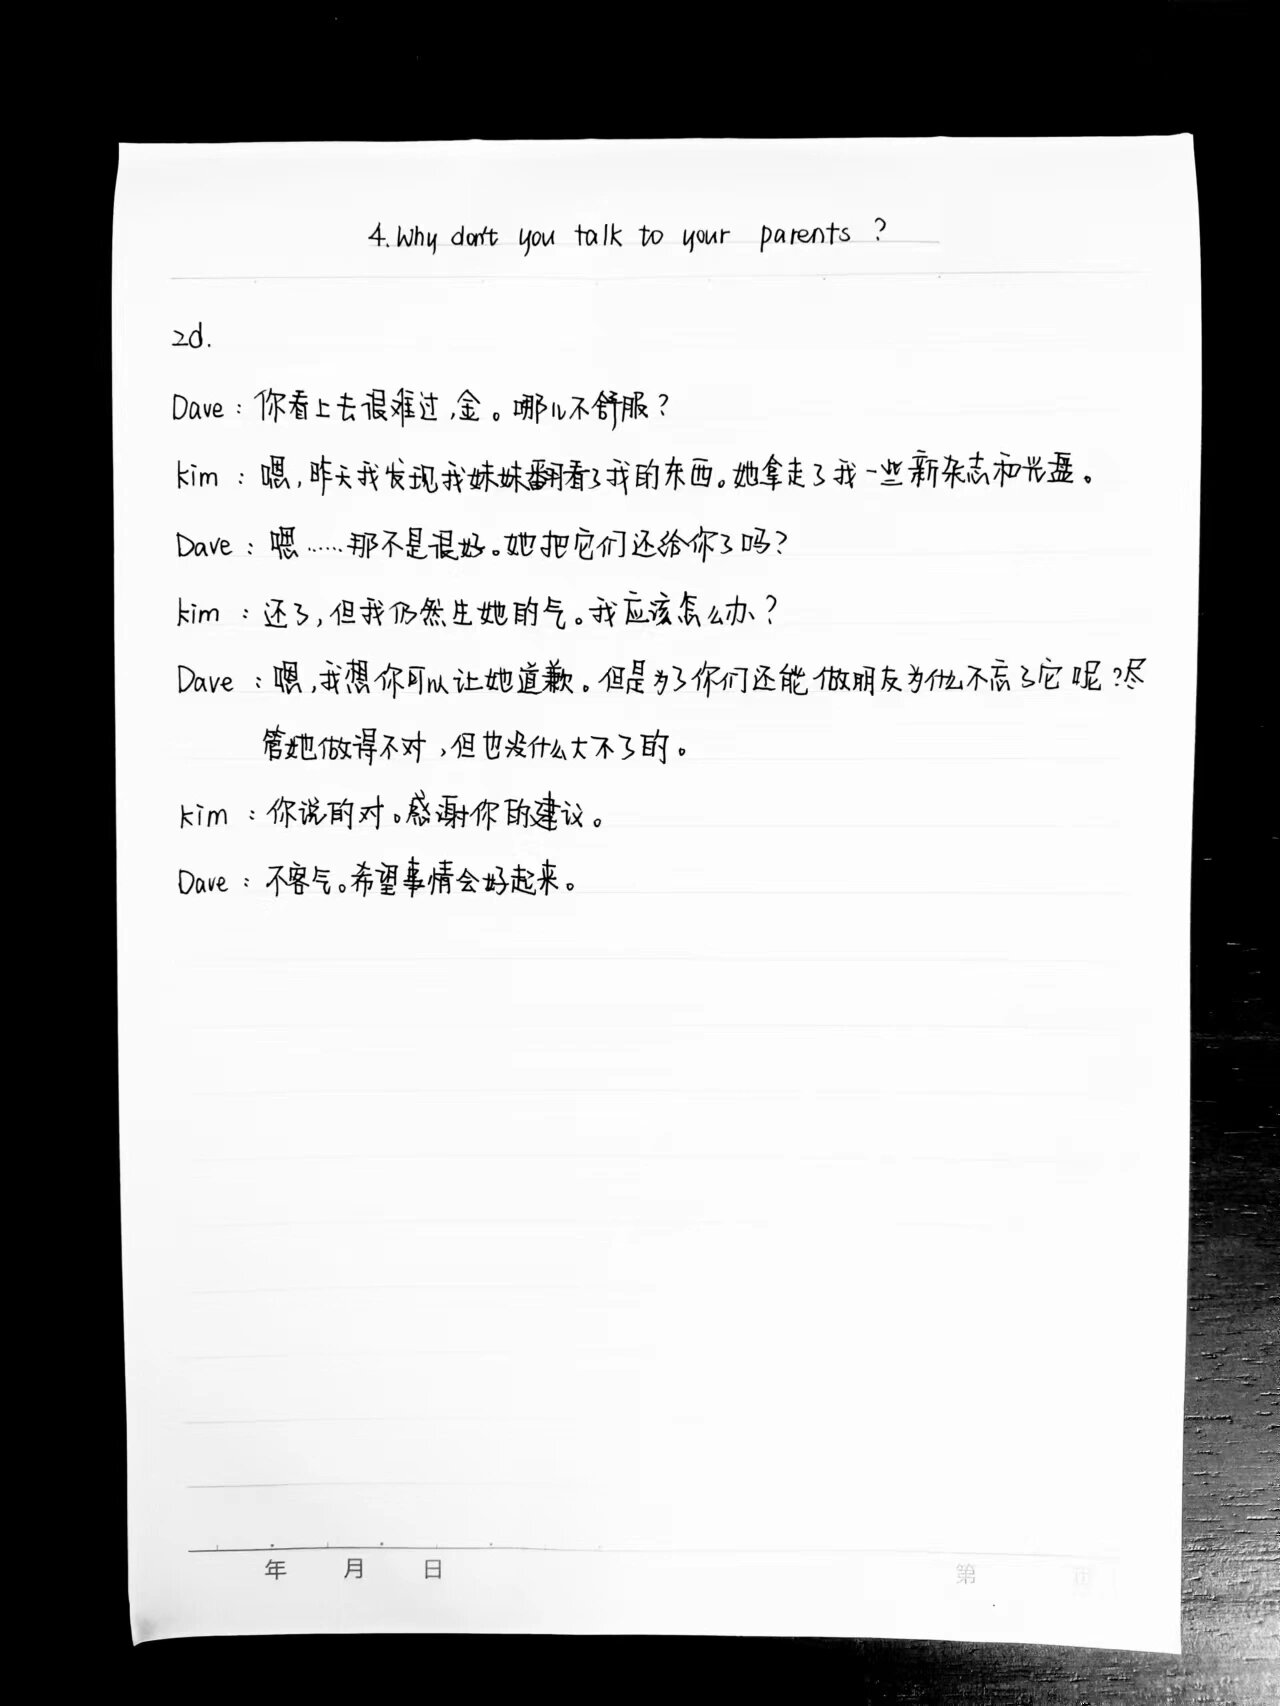 4. Why don't you talk to your parents ?
2d.
Dave : 你看上去很难过,金。哪儿不舒服?
Kim : 嗯,昨天我发现我妹妹翻看了我的东西。她拿走了我一些新杂志和光盘。
Dave : 嗯……那不是很好。她把它们还给你了吗?
Kim : 还了,但我仍然生她的气。我应该怎么办?
Dave : 嗯,我想你可以让她道歉。但是为了你们还能做朋友为什么不忘了它呢?尽
管她做得不对,但也没什么大不了的。
Kim : 你说的对。感谢你的建议。
Dave : 不客气。希望事情会好起来。
年 月 日 第 页